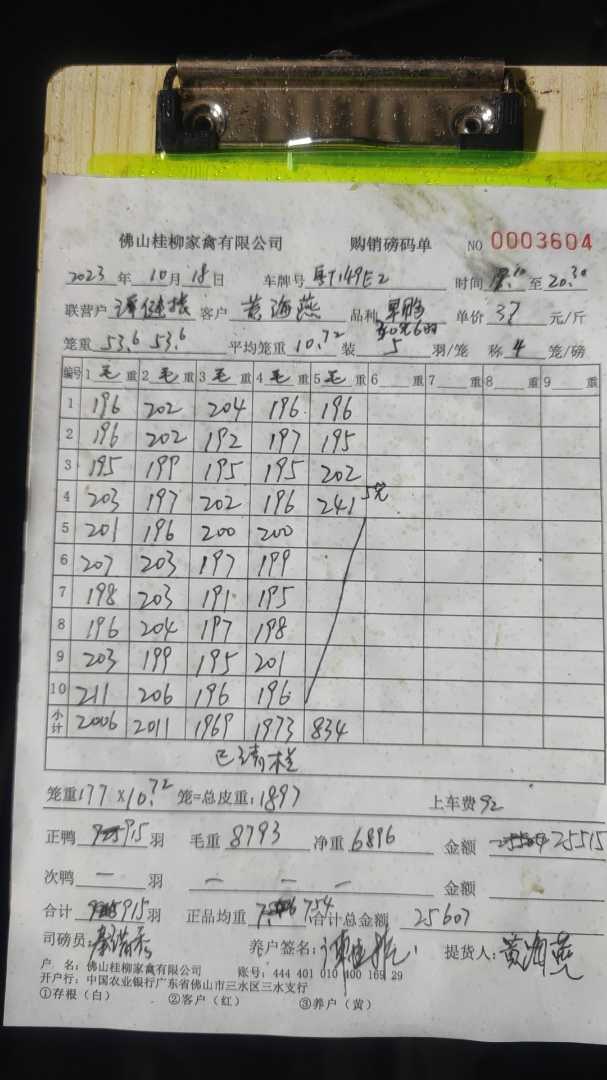 佛山桂柳家禽有限公司 购销磅码单 NO 0003604
2023年10月18日 车牌号 粤T149E2 时间 至20:30
联营户 客户 黄海燕 品种 单价 37 元/斤
笼重 53.6 53.6 平均笼重 10.72 装 5 羽/笼 称 4 笼/磅
编号 1毛重 2毛重 3毛重 4毛重 5毛重 6 重 7 重 8 重 9 重
1 196 202 204 196 196
2 196 202 192 197 195
3 195 199 195 195 202
4 203 197 202 196 241 5笼
5 201 196 200 200
6 207 203 197 199
7 198 203 191 195
8 196 204 197 198
9 203 199 195 201
10 211 206 196 196
小计 2006 2011 1969 1973 834
已清栏
笼重177×10.72笼=总皮重:1897 上车费92
正鸭 915羽 毛重 8793 净重 6896 金额 25515
次鸭 — 羽 — — — 金额
合计 915羽 正品均重 7.54 合计总金额 25607
司磅员: 养户签名: 提货人: 黄海燕
户 名: 佛山桂柳家禽有限公司 账号: 444 401 010 400 169 29
开户行: 中国农业银行广东省佛山市三水区三水支行
①存根（白） ②客户（红） ③养户（黄）